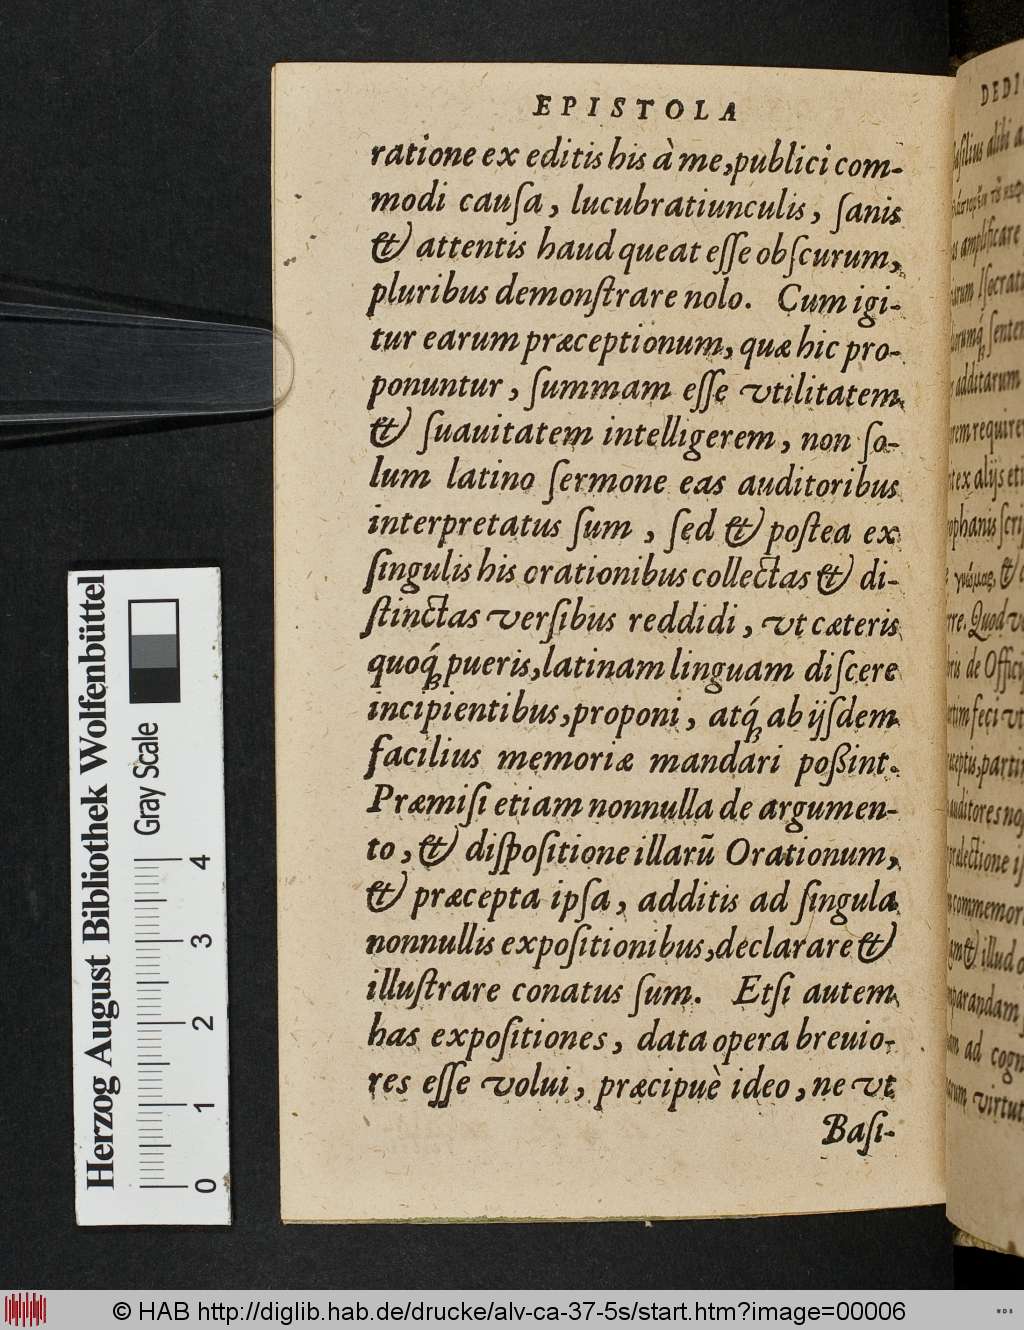 EPISTOLA
ratione ex editis his à me, publici com-
modi cauſa, lucubratiunculis, ſanis
& attentis haud queat eſſe obſcurum,
pluribus demonſtrare nolo. Cum igi-
tur earum præceptionum, quæ hic pro-
ponuntur, ſummam eſſe vtilitatem
& ſuauitatem intelligerem, non ſo-
lum latino ſermone eas auditoribus
interpretatus ſum, ſed & poſtea ex
ſingulis his orationibus collectas & di-
ſtinctas verſibus reddidi, vt cæteris
quoq́; pueris, latinam linguam diſcere
incipientibus, proponi, atq́; ab ijſdem
facilius memoriæ mandari poßint.
Præmiſi etiam nonnulla de argumen-
to, & diſpoſitione illarũ Orationum,
& præcepta ipſa, additis ad ſingula
nonnullis expoſitionibus, declarare &
illuſtrare conatus ſum. Etſi autem
has expoſitiones, data opera breuio-
res eſſe volui, præcipuè ideo, ne vt
Baſi-
DEDI
baſilius alibi
amplificare
Iſocrat
ſenten
additarum
requirer
ex alijs eti
γνώμας, &
Quod v
de Offici
feci vt
partin
auditores no
prælectione i
commemor
& illud
parandam
ad cogn
virtut
Herzog August Bibliothek Wolfenbüttel
Gray Scale
0 1 2 3 4
© HAB http://diglib.hab.de/drucke/alv-ca-37-5s/start.htm?image=00006
WDB